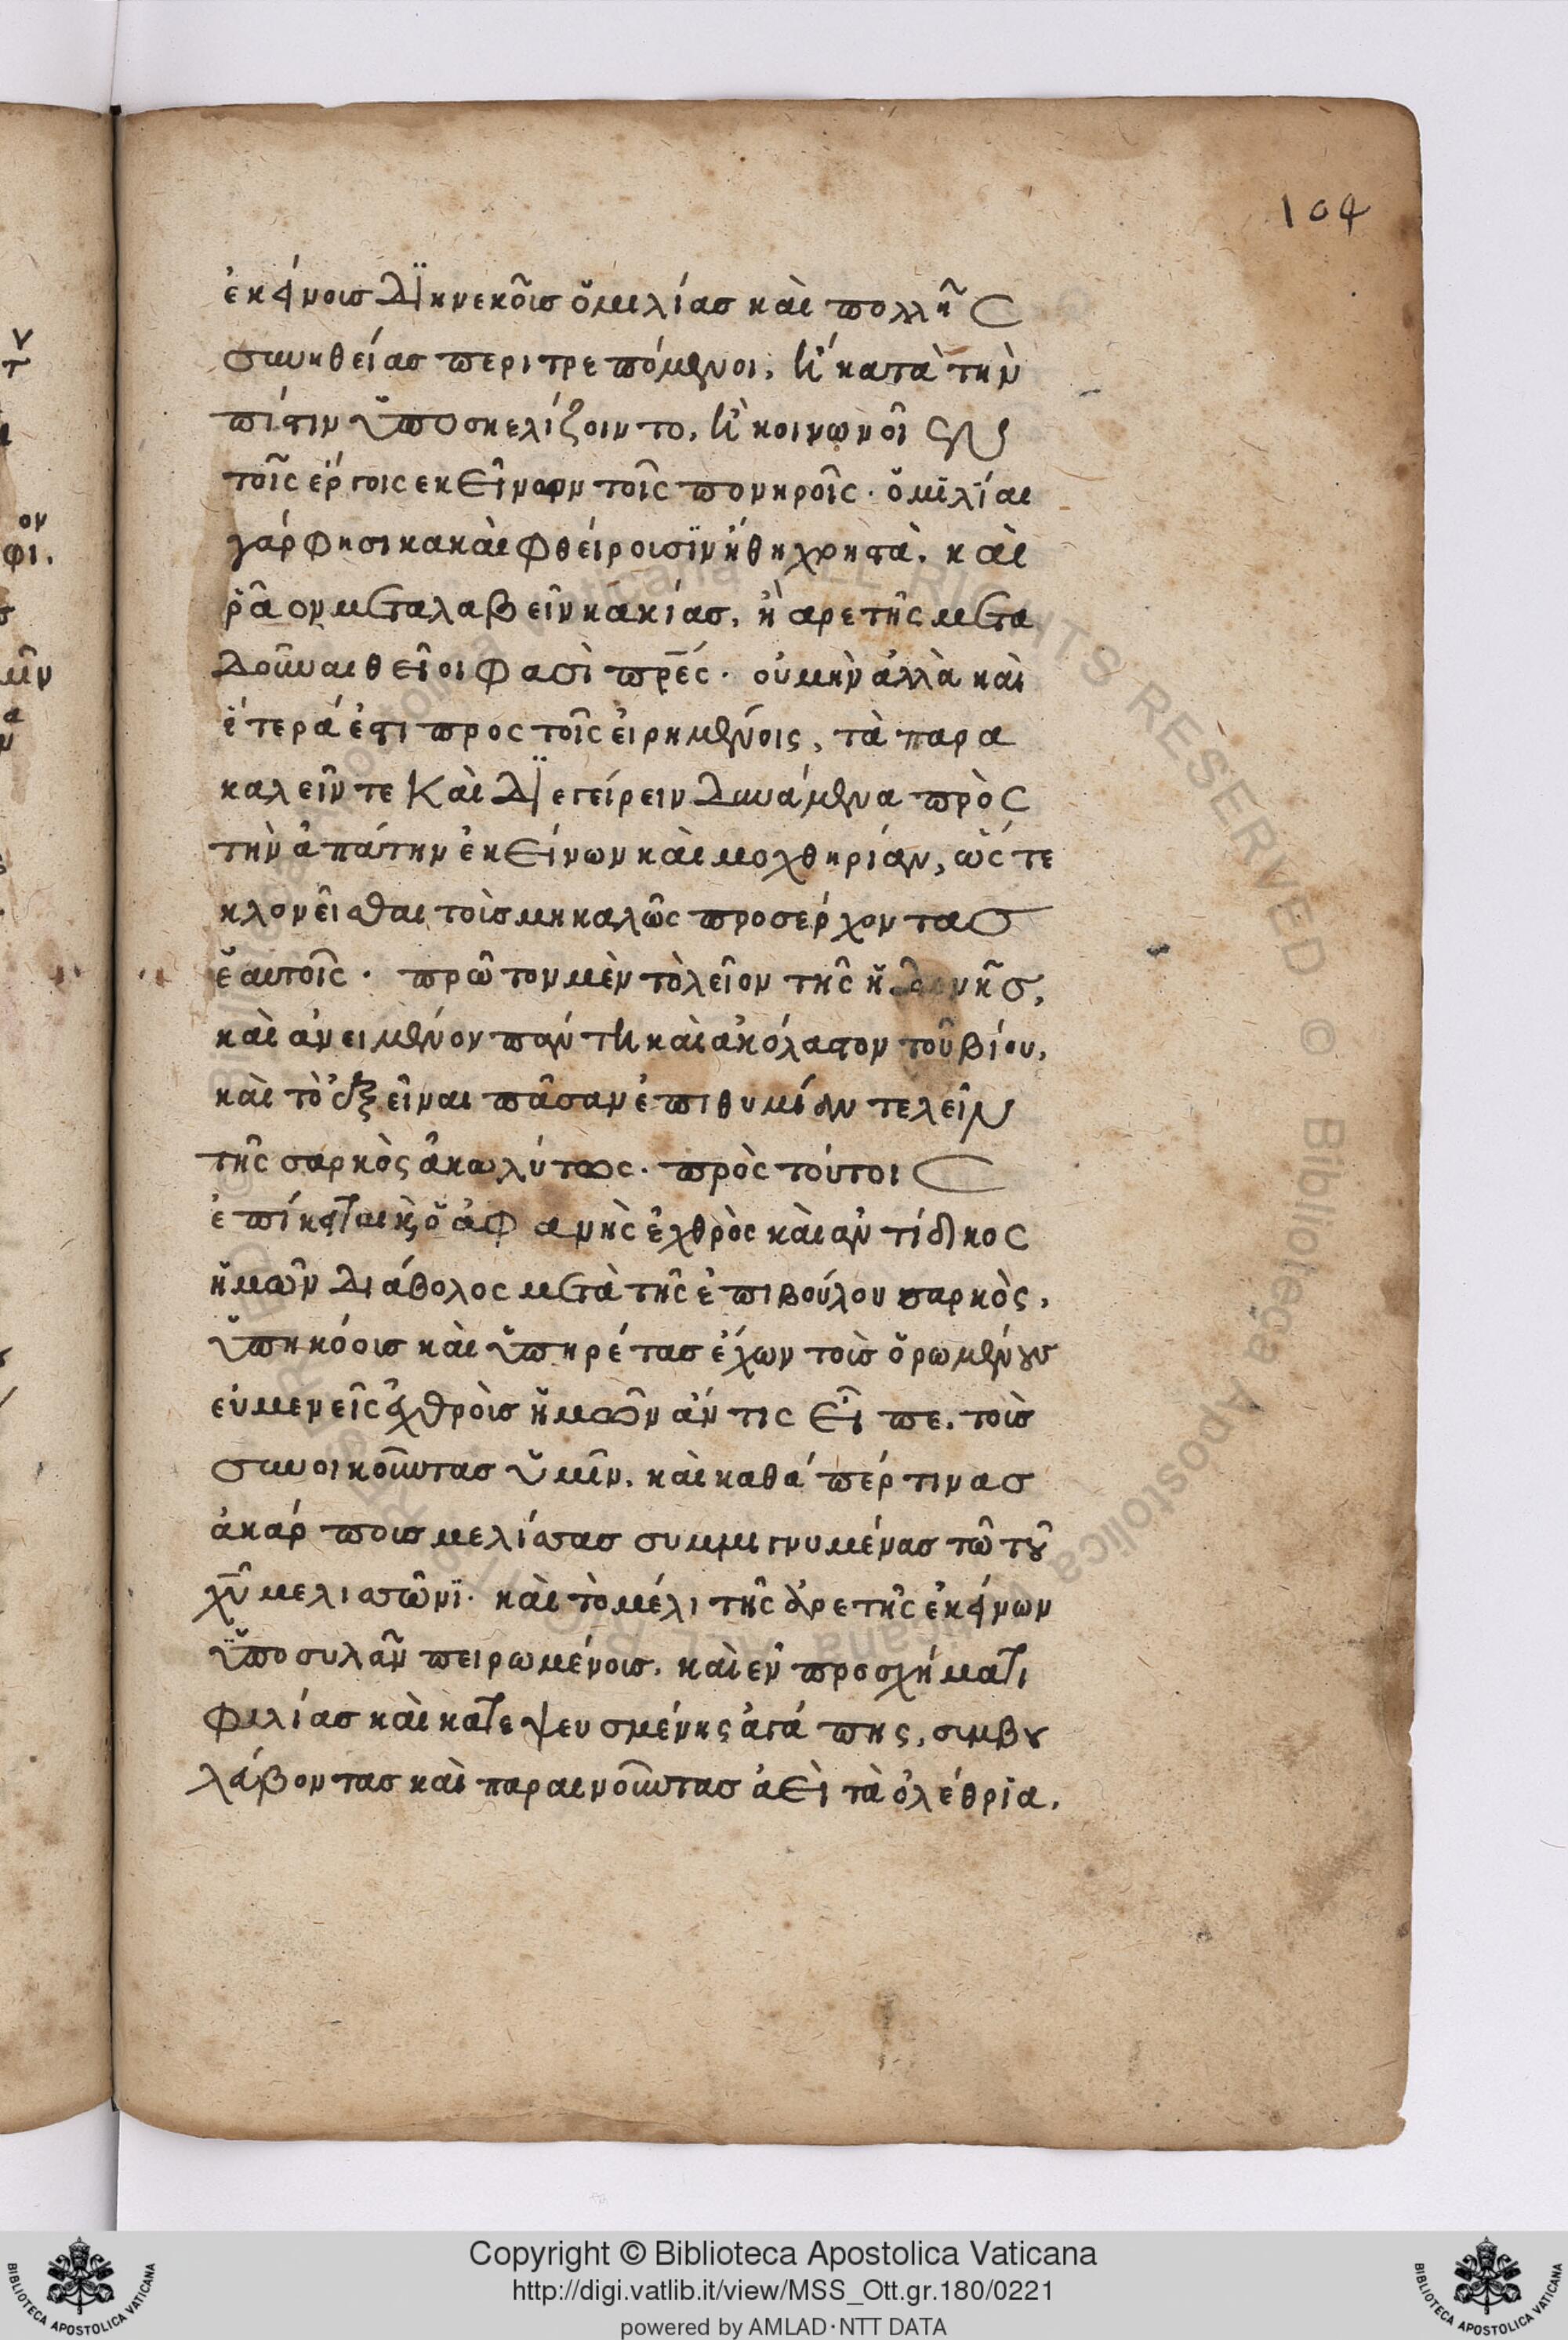 104
ἐκείνοις διηνεκοῦς ὁμιλίας καὶ πολλῆς
συνηθείας περιτρεπόμενοι, ἢ κατὰ τὴν
πίστιν ὑποσκελίζοιντο, ἢ κοινωνοῖεν
τοῖς ἔργοις ἐκείνων τοῖς πονηροῖς. ὁμιλίαι
γάρ φησι κακαὶ φθείρουσϊν ἤθη χρηστὰ, καὶ
ῥᾶον μεταλαβεῖν κακίας, ἢ ἀρετῆς μετα
δοῦναι θεῖοι φασὶ πρ̅ε̅ς. οὐ μὴν ἀλλὰ καὶ
ἕτερά ἐστι προς τοῖς εἰρημένοις, τὰ παρα
καλεῖν τε καὶ διεγείρειν δυνάμενα πρὸς
τὴν ἀπάτην ἐκείνων καὶ μοχθηρίαν, ὥς τε
κλονεῖσθαι τοὺς μη καλῶς προσέρχοντας
ἑαυτοῖς. πρῶτον μὲν τὸ λεῖον τῆς ἡδονῆς,
καὶ ἀνειμένον πάντη καὶ ἀκόλαστον τοῦ βίου,
καὶ τὸ ἐξεῖναι πᾶσαν ἐπιθυμίαν τελεῖν
τῆς σαρκὸς ἀκωλύτως. πρὸς τούτοις
ἐπίκειται κ̀ ὁ ἀφανὴς ἐχθρὸς καὶ ἀντίδικος
ἡμῶν διάβολος μετὰ τῆς ἐπιβούλου σαρκὸς,
ὑπηκόους καὶ ὑπηρέτας ἔχων τοὺς ὁρωμένους
εὐμενεῖς ἐχθροὺς ἡμῶν ἄν τις εἴπε, τοὺς
συνοικοῦντας ὑμῖν, καὶ καθάπέρ τινας
ἀκάρπους μελίσσας συμμιγνυμένας τῶ τοῦ
χ̅υ̅ μελισσῶνϊ. καὶ τὸ μέλι τῆς ἀρετῆς ἐκείνων
ὑποσυλᾶν πειρωμένους, καὶ ἐν προσχήματι
φιλίας καὶ κατεψευσμένης ἀγάπης, συμβου
λάβοντας καὶ παραινοῦντας ἀεὶ τὰ ὀλέθρϊα,
Copyright © Biblioteca Apostolica Vaticana
http://digi.vatlib.it/view/MSS_Ott.gr.180/0221
powered by AMLAD·NTT DATA